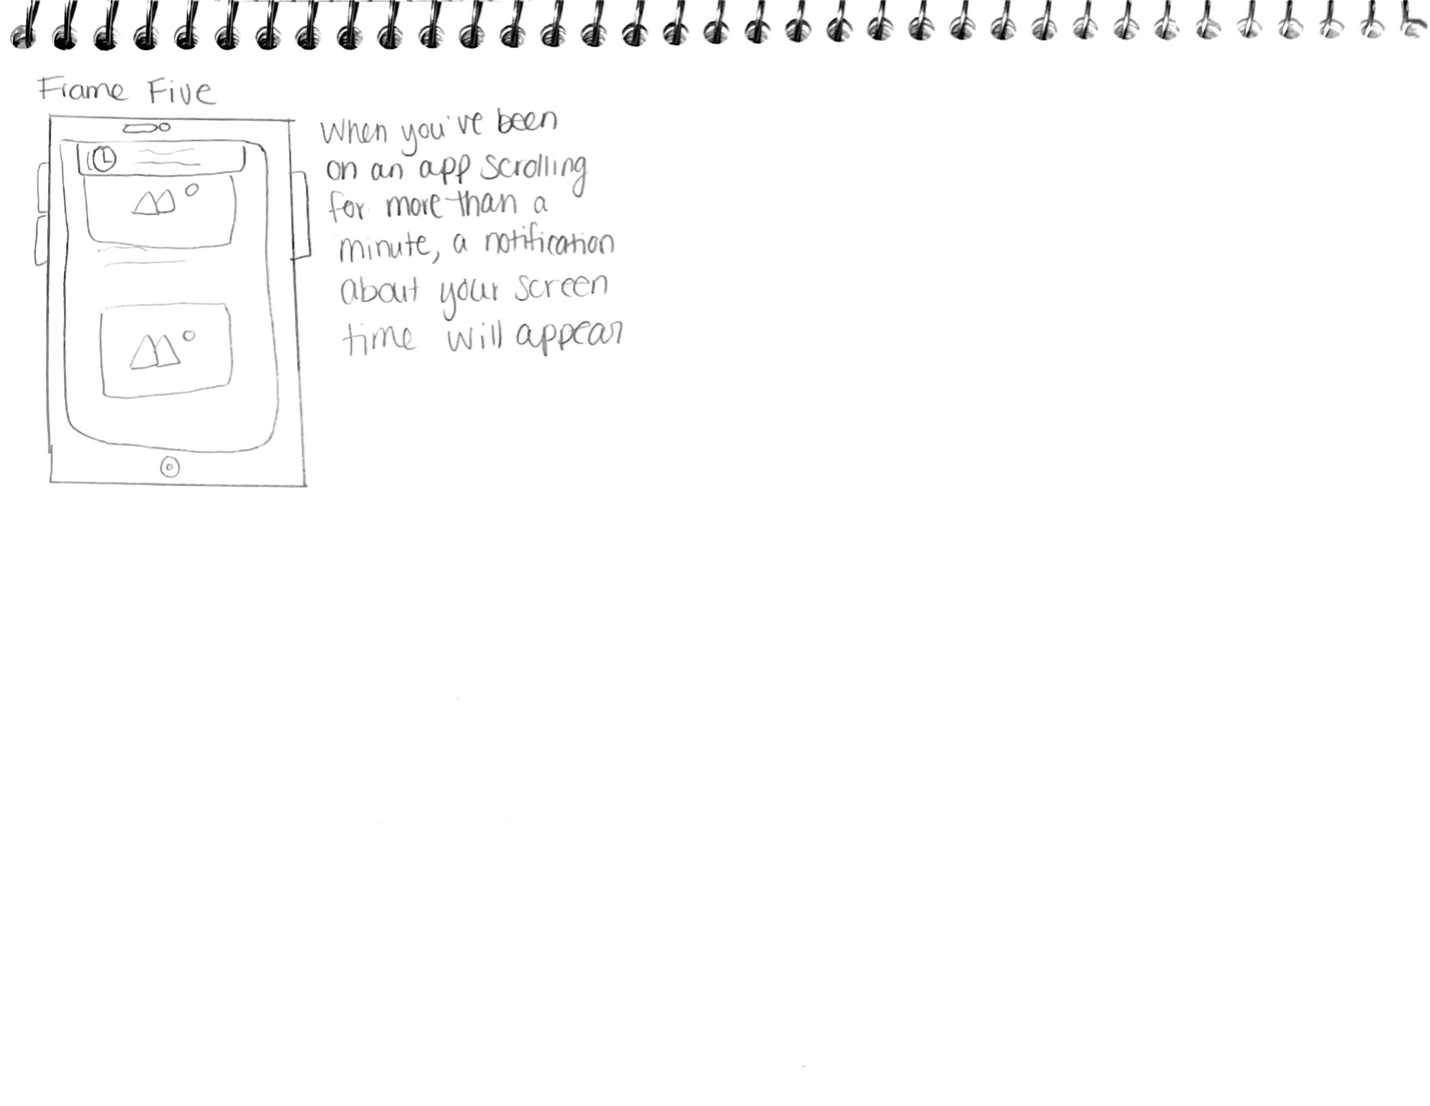 Frame Five
When you've been
on an app scrolling
for more than a
minute, a notification
about your screen
time will appear